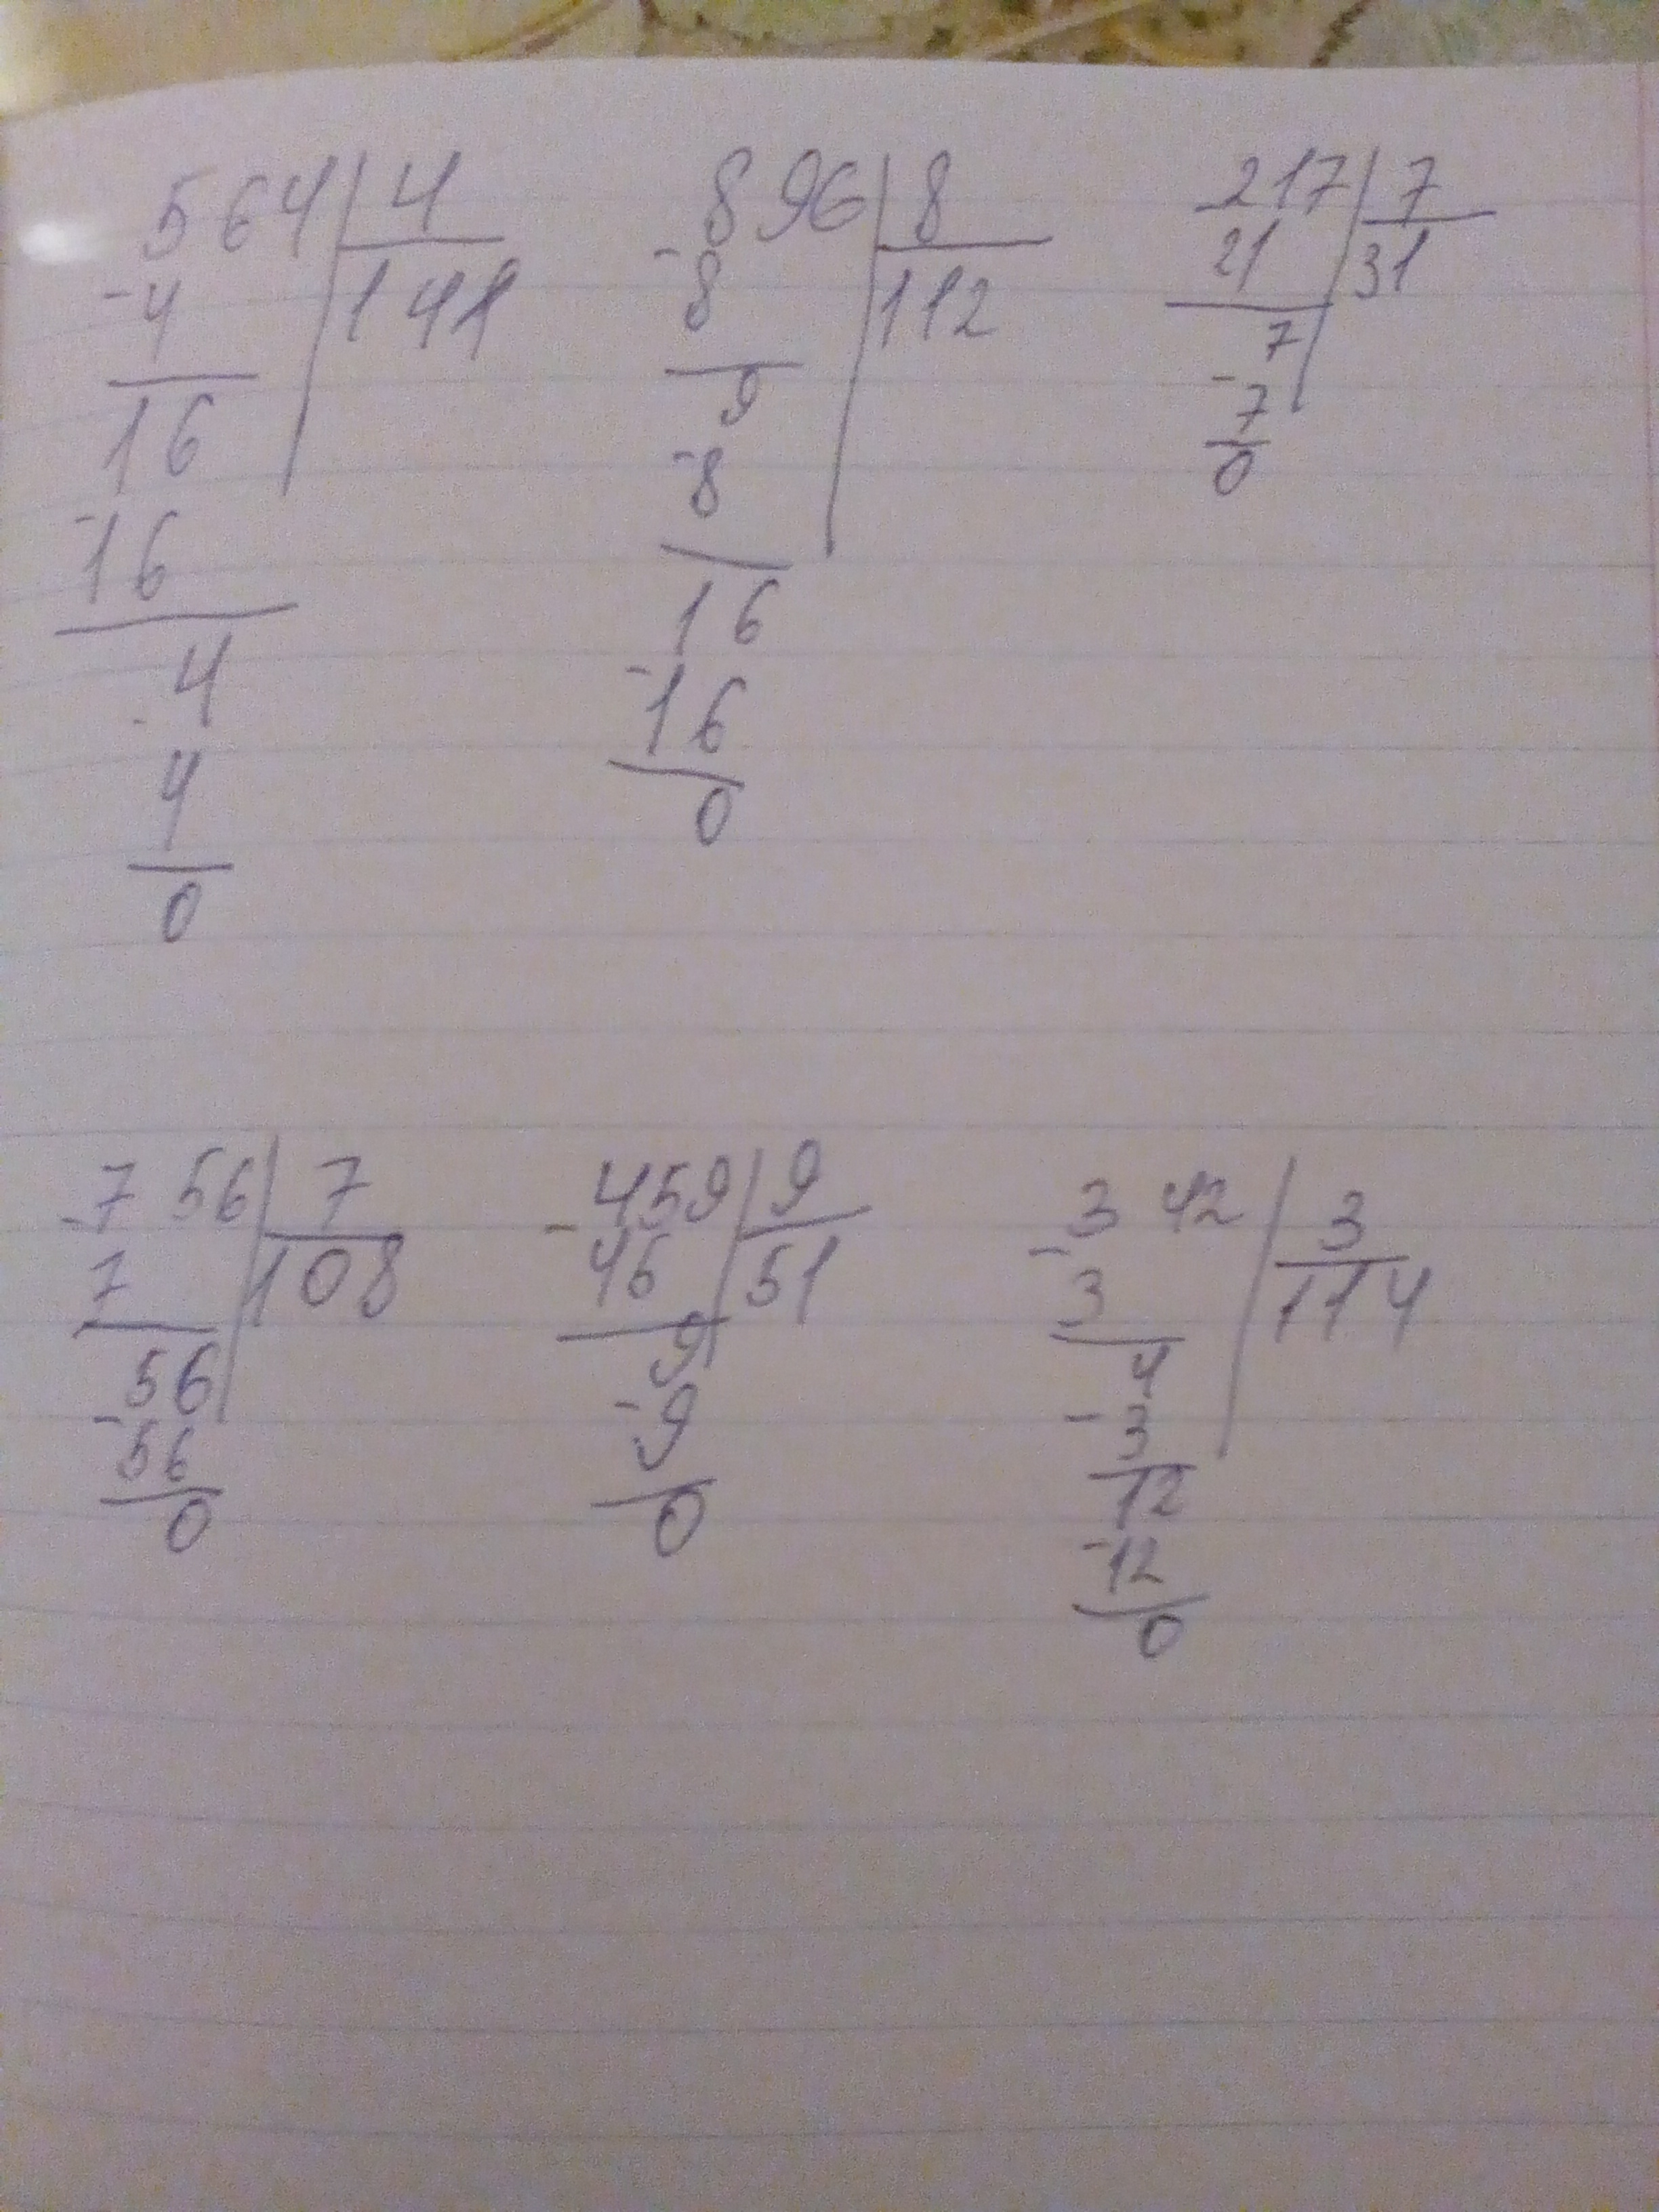 564 4
-4 141
16
-16
4
-4
0
896 8
-8 112
9
-8
16
-16
0
-217 7
21 31
7
-7
0
-756 7
7 108
56
-56
0
-459 9
45 51
9
-9
0
-342 3
3 114
4
-3
12
-12
0